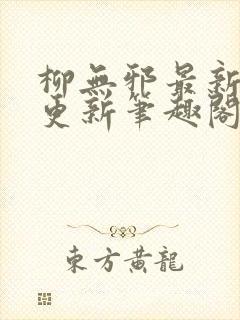 柳無邪最新
更新筆趣閣
東方黃龍